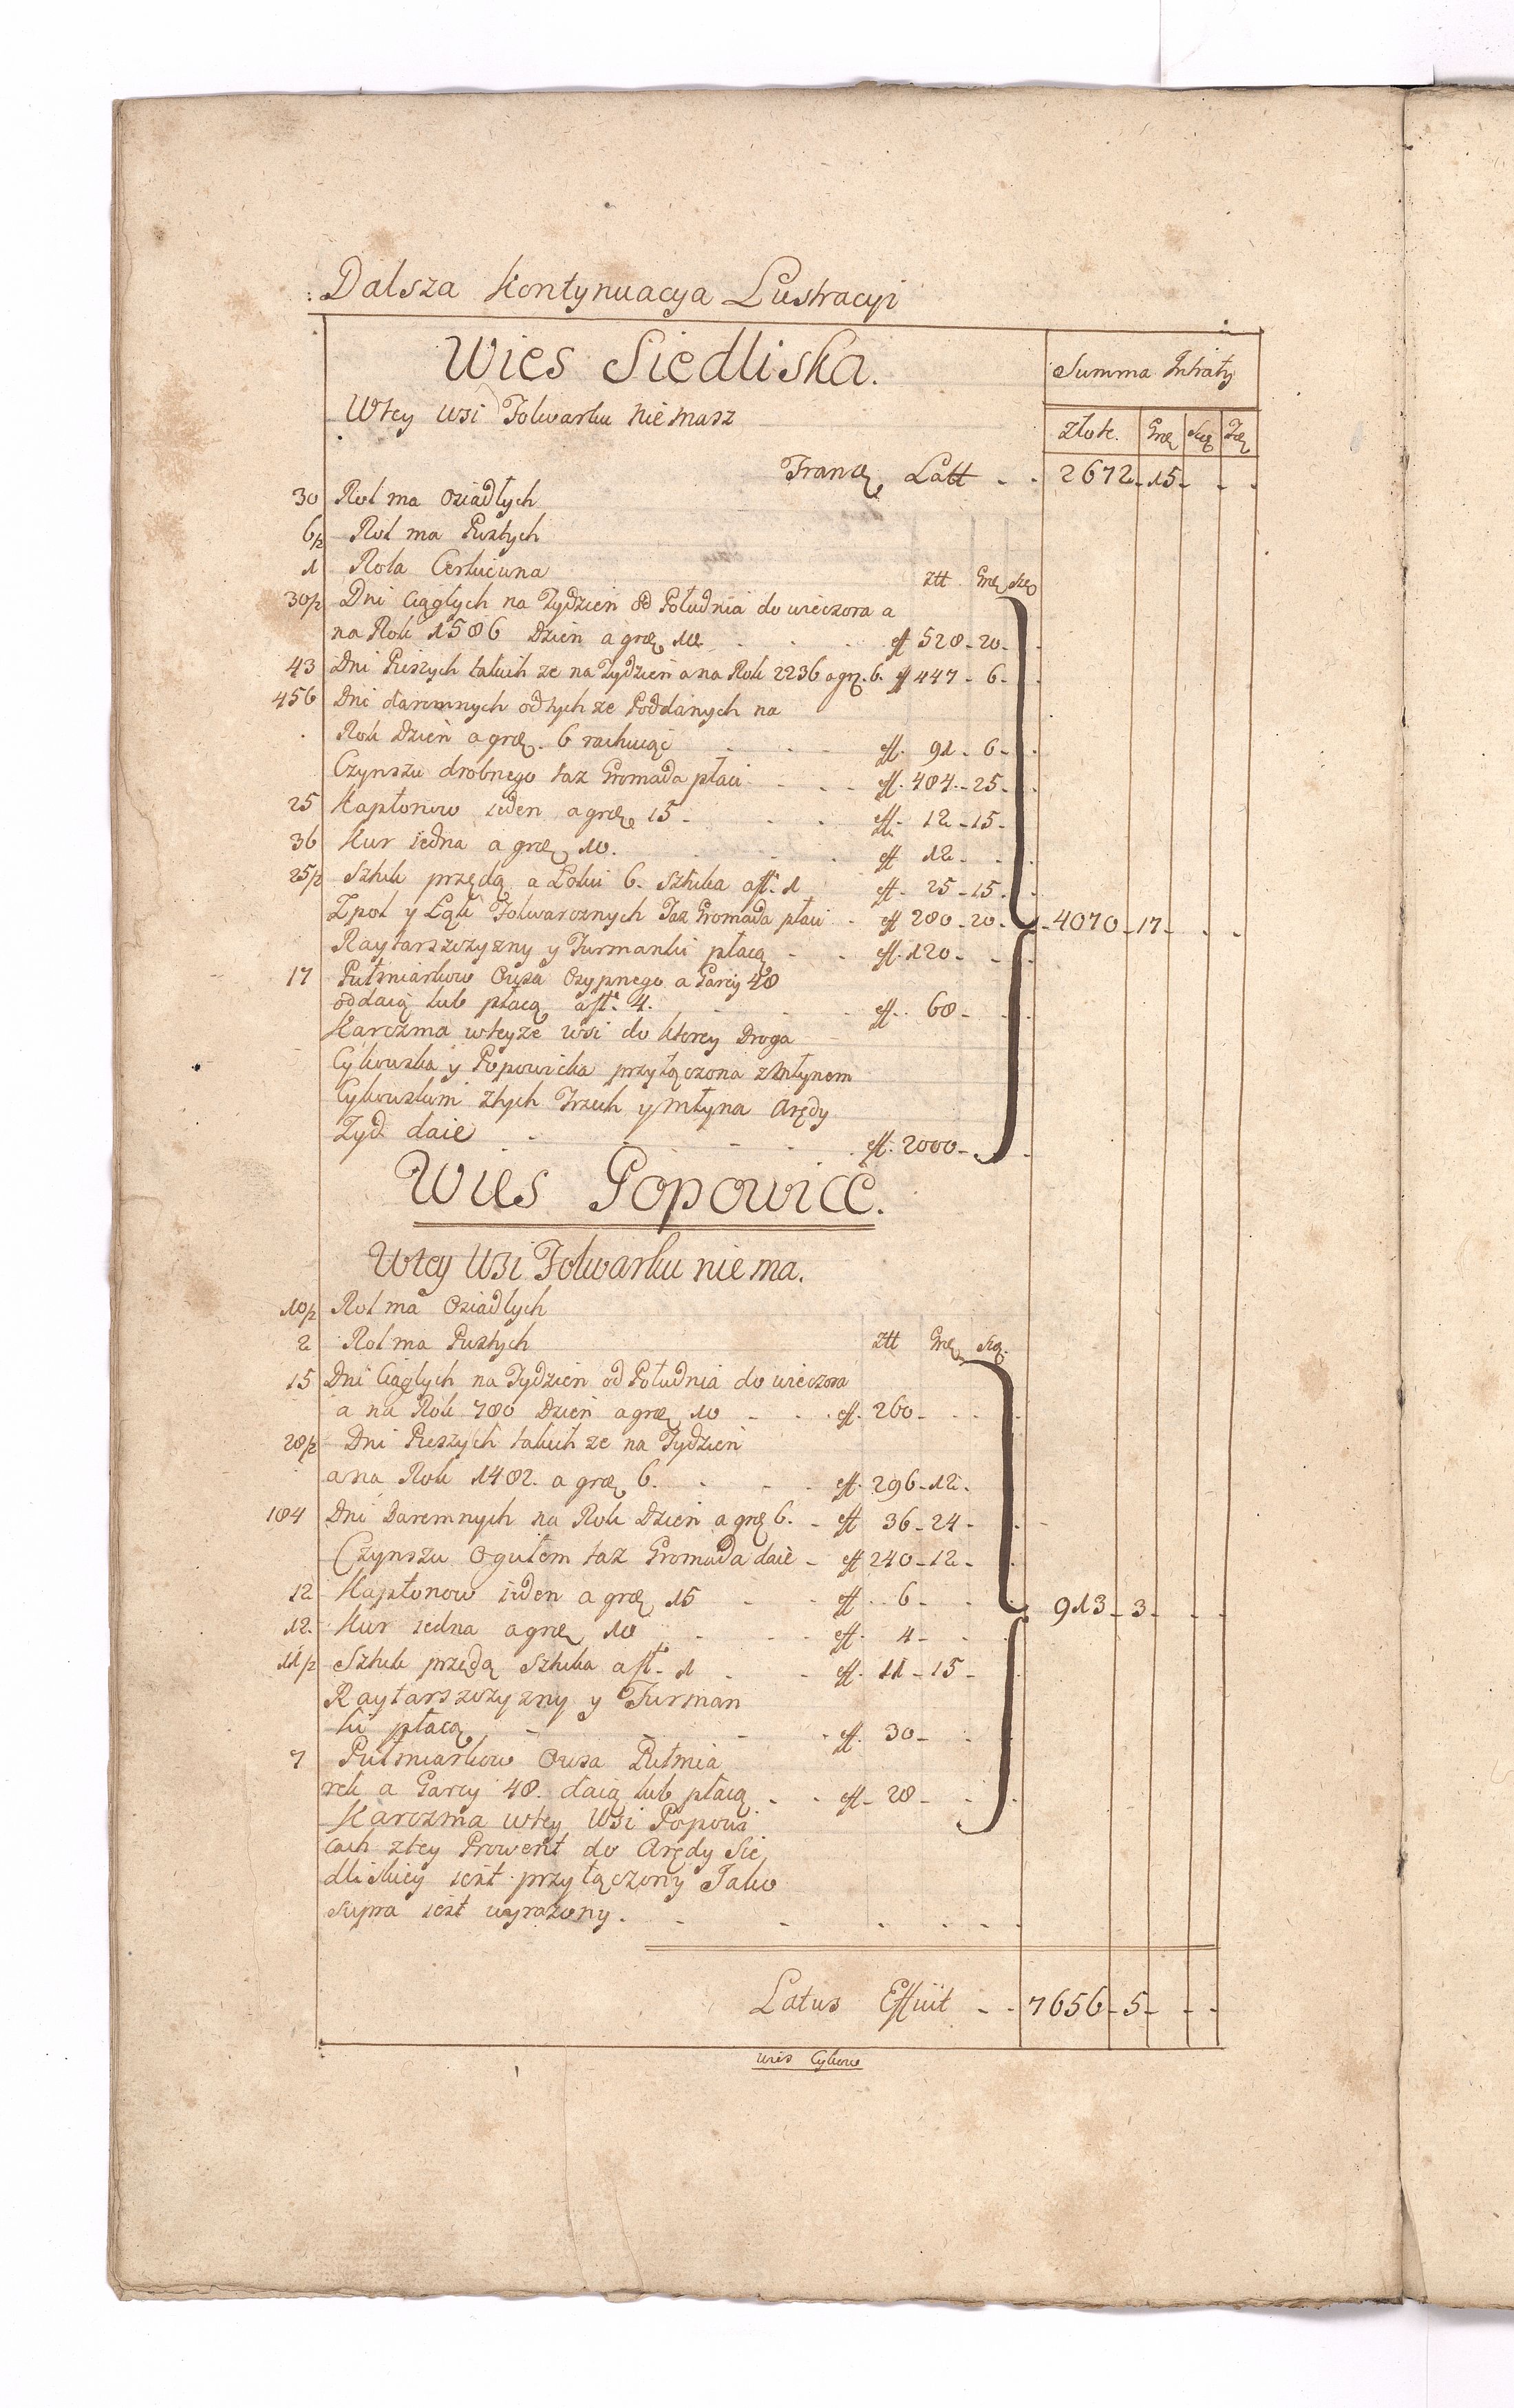 Dalsza Kontynuacya Lustracyi
Wies Siedliska.
Summa Intraty
Wtey wsi Folwarku nie masz
Złote. Grę Szę
Latt - - 2672 - 15 - - -
30 Rol ma Osiadłych
6/2 Rol ma Pustych
1 Rola
ztt Grę Szę
30/2 Dni Ciągłych na Tydzień od Południa do wieczora a
na Rok 1586 Dzień a grę 10 - - - ff 528 - 20 -
43 Dni Pieszych takich ze na Tydzień a na Rok 2236 a grz. 6. ff 447 - 6 -
456 Dni daremnych od tych ze Poddanych na
Rok Dzień a grę. 6 rachuiąc - - - ff. 91 - 6 -
Czynszu drobnego taz Gromada płaci - - - ff. 484 - 25 -
25 Kapłonow ieden a grę 15 - - - ff. 12 - 15 -
36 Kur iedna a grę 10. - - - ff 12 - -
25/2 Sztuk przędą a Łokci 6. Sztuka a ff. 1 ff. 25 - 15 -
Zpol y Łąk Folwarcznych Taz Gromada płaci - ff 280 - 20 - 4070 - 17 - - -
Raytarszczyzny y Furmanki płacą - - ff. 120 - - -
17 Pułmiarkow Owsa Osypnego a Garcy 48
oddaią lub płacą a ff. 4. - - - ff. 68 - - -
Karczma wteyze wsi do ktorey Droga
Cykowska y Popowicka przyłączona z Młynem
Cykowskim Ztych Trzech y Młyna Arędy
Zyd daie - - - - ff. 2000 - - -
Wies Popowice.
Wtey Wsi Folwarku nie ma.
10/2 Rol ma Osiadłych
2 Rol ma Pustych ztt Grę Szę.
15 Dni Ciągłych na Tydzień od Południa do wieczora
a na Rok 780 Dzień a grę 10 - - - ff. 260 - - -
28/2 Dni Pieszych takich ze na Tydzień
a na Rok 1482. a grę 6. - - - ff. 296 - 12 -
184 Dni Daremnych na Rok Dzień a grę 6. - ff 36 - 24 -
Czynszu Ogułem taz Gromada daie - ff 240 - 12 -
12 Kapłonow ieden a grę 15 - - ff. 6 - - - 913 - 3 - - -
12. Kur iedna a grę 10 - - - ff. 4 - -
11/2 Sztuk przędą Sztuka a ff. 1 - - ff. 11 - 15 -
Raytarszczyzny y Furman
ki płacą - - - - ff. 30 - -
7 Pułmiarkow Owsa Pułmia
rek a Garcy 48. daią lub płacą - - ff - 28 - - -
Karczma wtey Wsi Popowi
cach ztey Prowent do Arędy Sie
dliskiey iest przyłączony Jako
supra iest wyrazony. - - - - -
Latus Effuit - - 7656 - 5 - - -
wies Cykow